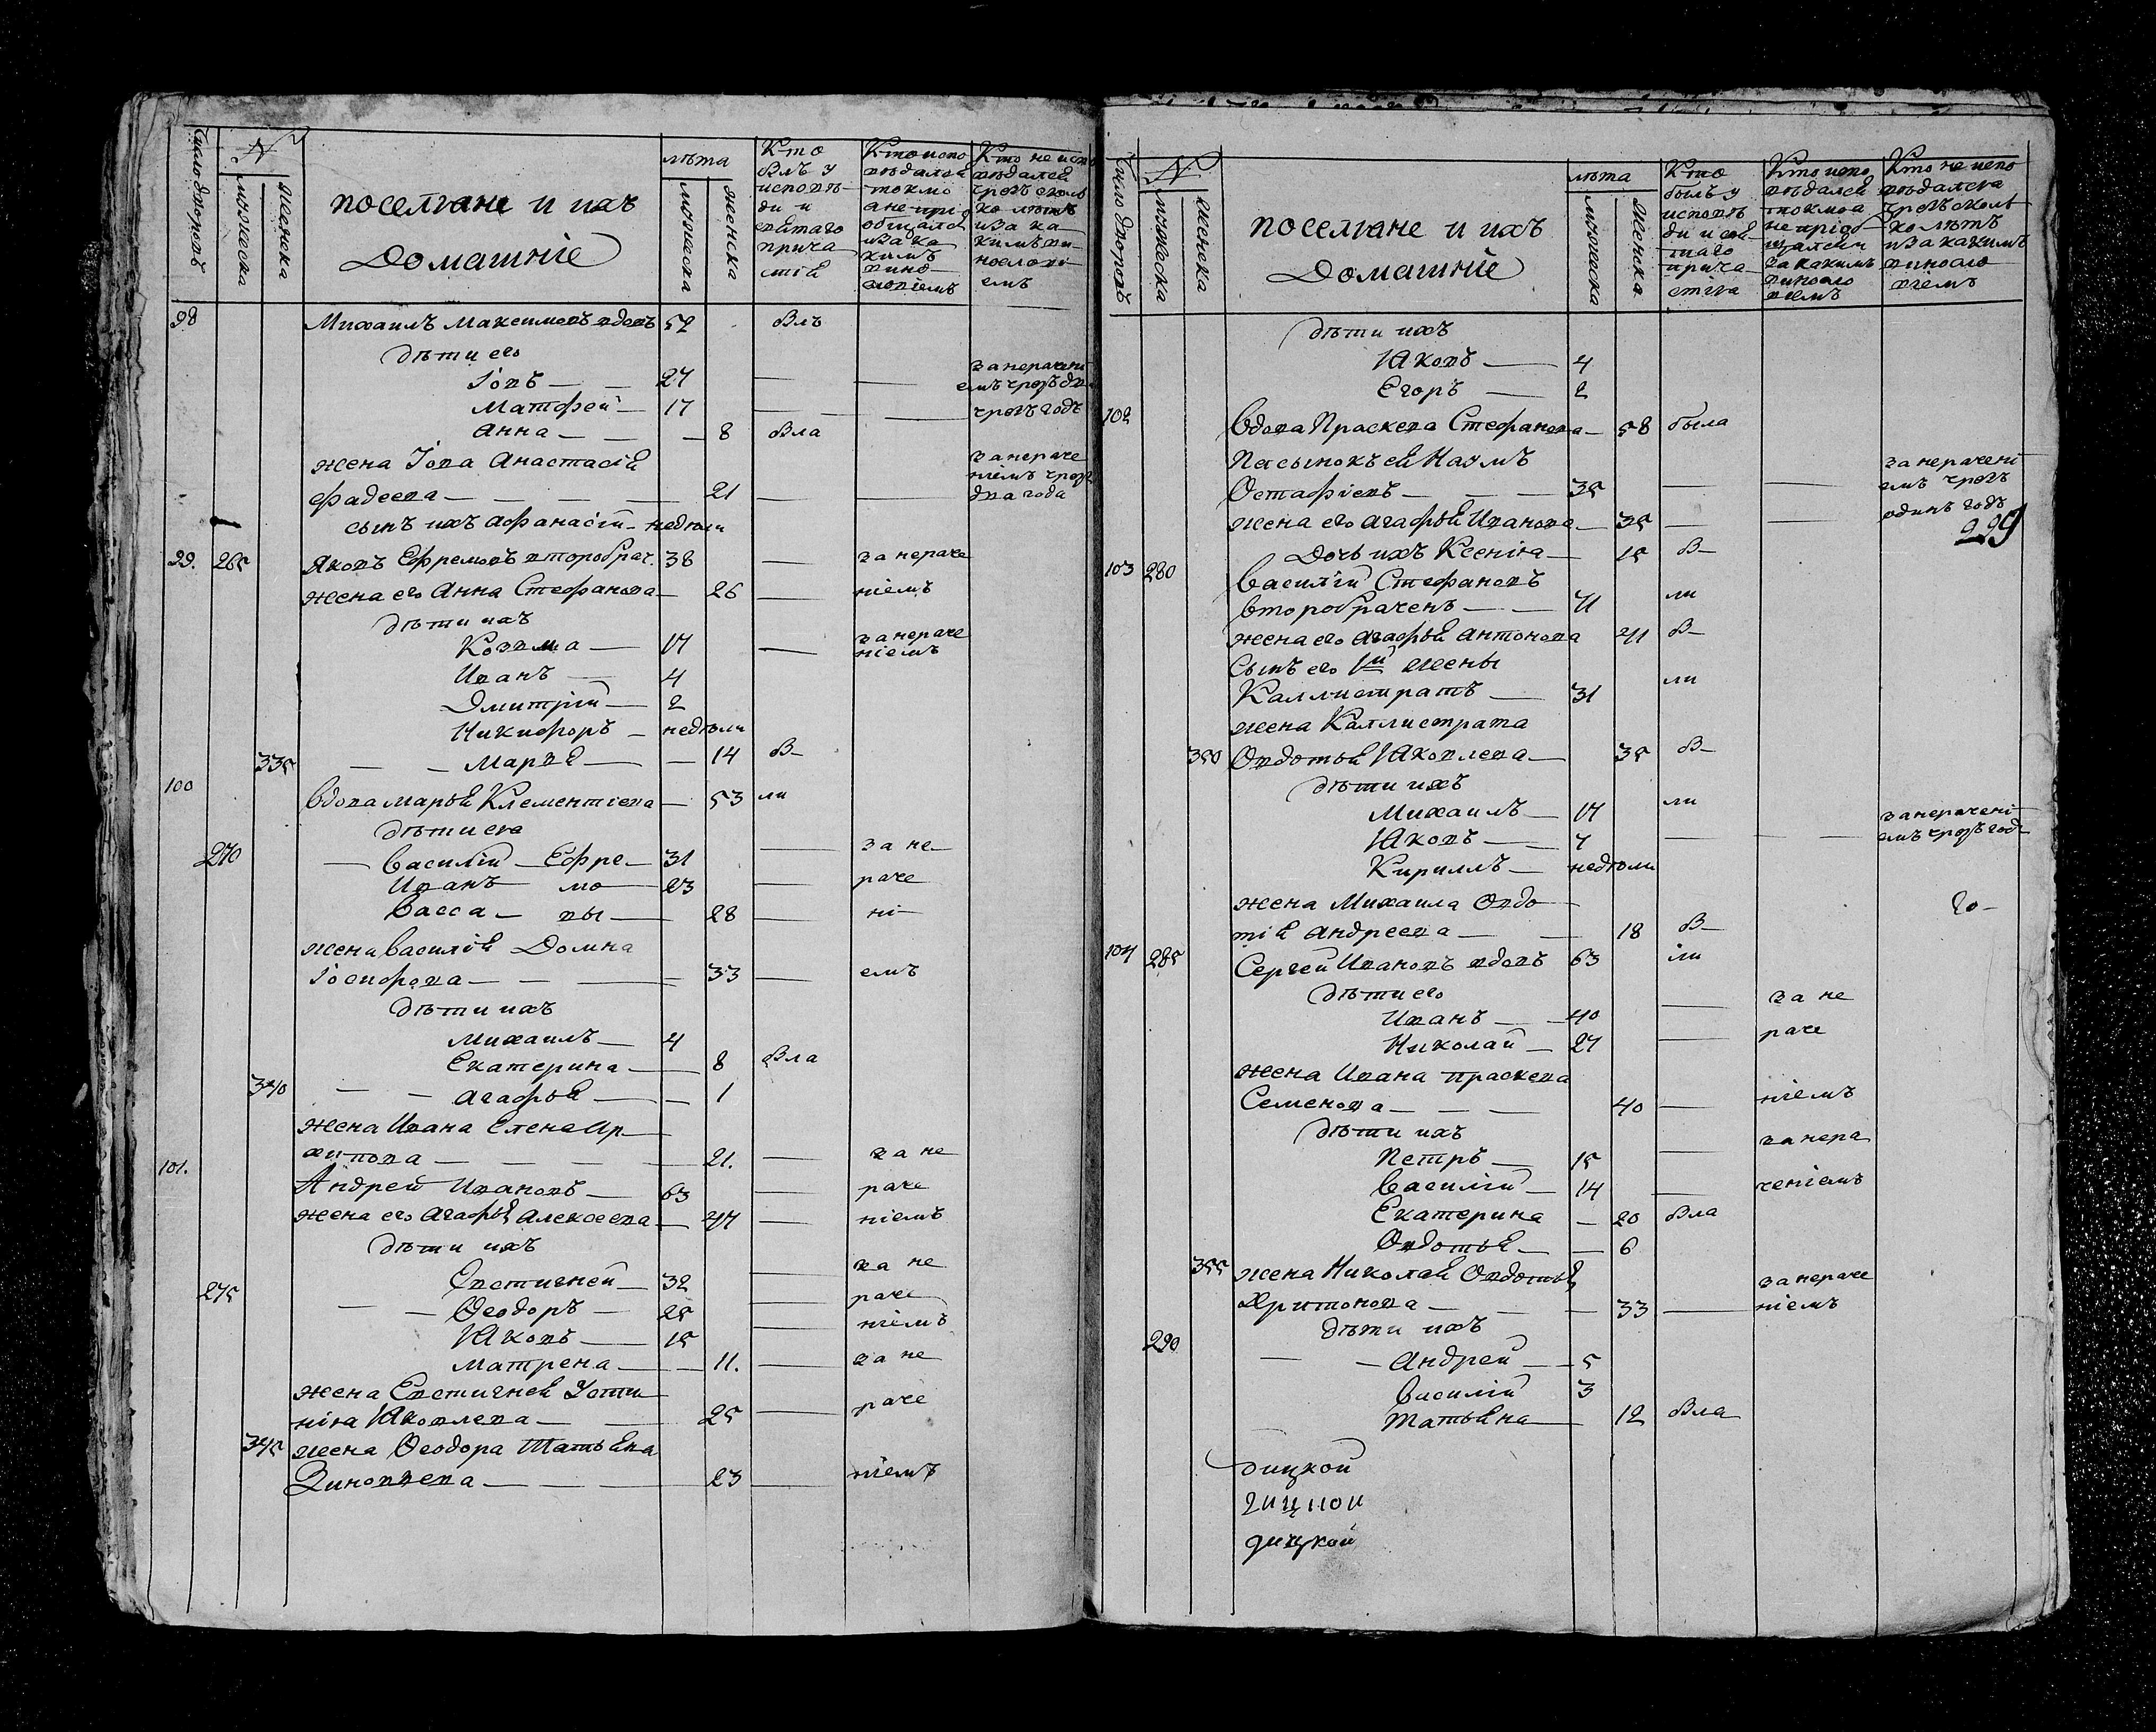 Число дворовъ
№
мужеска
женска
поселяне и ихъ
домашніе
лѣта
мужеска
женска
Кто
былъ у
исповѣ-
ди и
святаго
прича
стія
Кто испо
вѣдался
токмо
а не прі
общался
и за ка
кимъ
вино-
словіемъ
Кто не испо
вѣдался
чрезъ сколь
ко лѣтъ
и за ка
кимъ ви-
нослові-
емъ
98 Михаилъ Максимовъ вдовъ 52 Блъ
дѣти его
Іовъ — — 27 — — за нерачені
емъ чрезъ два
Матфей — 17 — — чрезъ годъ
Анна — — — 8 Бла
жена Іова Анастасія за нераче
ніемъ чрезъ
Фадеева — — — — 21 — — два года
сынъ ихъ Афанасій — недѣли
99. 265 Яковъ Ефремовъ второбрач. 38 — за нераче
жена его Анна Стефанова — 26 — ніемъ
дѣти ихъ
Козма — 17 — за нераче
ніемъ
Иванъ — 4
Дмитрій — 2
Никифоръ — недѣли
335 — — Марья — — 14 В—
100 Вдова Марья Клементіева — 53 ли
дѣти ея
270 — Василій — Ефре — 31 — за не—
Иванъ — мо — 23 — раче
Васса — вы — 28 — ні—
жена Василія Домна
Іосифова — — — 33 — емъ
дѣти ихъ
Михаилъ — 4
Екатерина — 8 Бла
340 — — Агафья — — 1
жена Ивана Елена Ар—
хипова — — — — 21. — за не
101. Андрей Ивановъ — 63 — раче
жена его Агафья Алексеева — 47 — ніемъ
дѣти ихъ
Евстигней — 32 — за не
275 — — Ѳеодоръ — 25 — раче
Яковъ — 15 — ніемъ
Матрена — — 11. — за не
жена Евстигнея Усти
нія Яковлева — — 25 — раче
345 жена Ѳеодора Татьяна
Зиновьева — — — 23 — ніемъ
Число дворовъ
№
мужеска
женска
поселяне и ихъ
домашніе
лѣта
мужеска
женска
Кто
былъ у
исповѣ
ди и свя
таго
прича
стія
Кто испо
вѣдался
токмо а
не пріоб
щался и
за какимъ
виносло
віемъ
Кто не испо
вѣдался
чрезъ сколь
ко лѣтъ
и за какимъ
виносло
віемъ
дѣти ихъ
Яковъ — 4
Егоръ — 2
102 Вдова Праскева Стефанова — 58 была
Пасынокъ ея Наумъ за нерачені
Остафіевъ — — — 35 — — емъ чрезъ
жена его Агафья Иванова — 35 — — одинъ годъ
229
Дочь ихъ Ксенія — 15 В—
103 280 Василій Стефановъ
второбраченъ — — 71 ли
жена его Агафья Антонова 71 В—
Сынъ его 1й жены
Каллистратъ — 31 ли
жена Каллистрата
350 Овдотья Яковлева — 35 В—
дѣти ихъ
Михаилъ — 17 ли
Яковъ — 7 — — за нерачені
емъ чрезъ годъ
Кирилъ — недѣли
жена Михаила Овдо—
тія Андреева — — 18 В—
20—
104 285 Сергей Ивановъ вдовъ 63 ли
дѣти его
Иванъ — 40 — за не
Николай — 27 — раче
жена Ивана Праскева
Семенова — — — 40 — ніемъ
дѣти ихъ
Петръ — 15 — за нера
Василій — 14 — ченіемъ
Екатерина — 20 Бла
Овдотья — — 6
355 жена Николая Овдотья за нераче
Харитонова — — — 33 — ніемъ
дѣти ихъ
290 — — Андрей — 5
Василій 3
Татьяна — 12 Бла